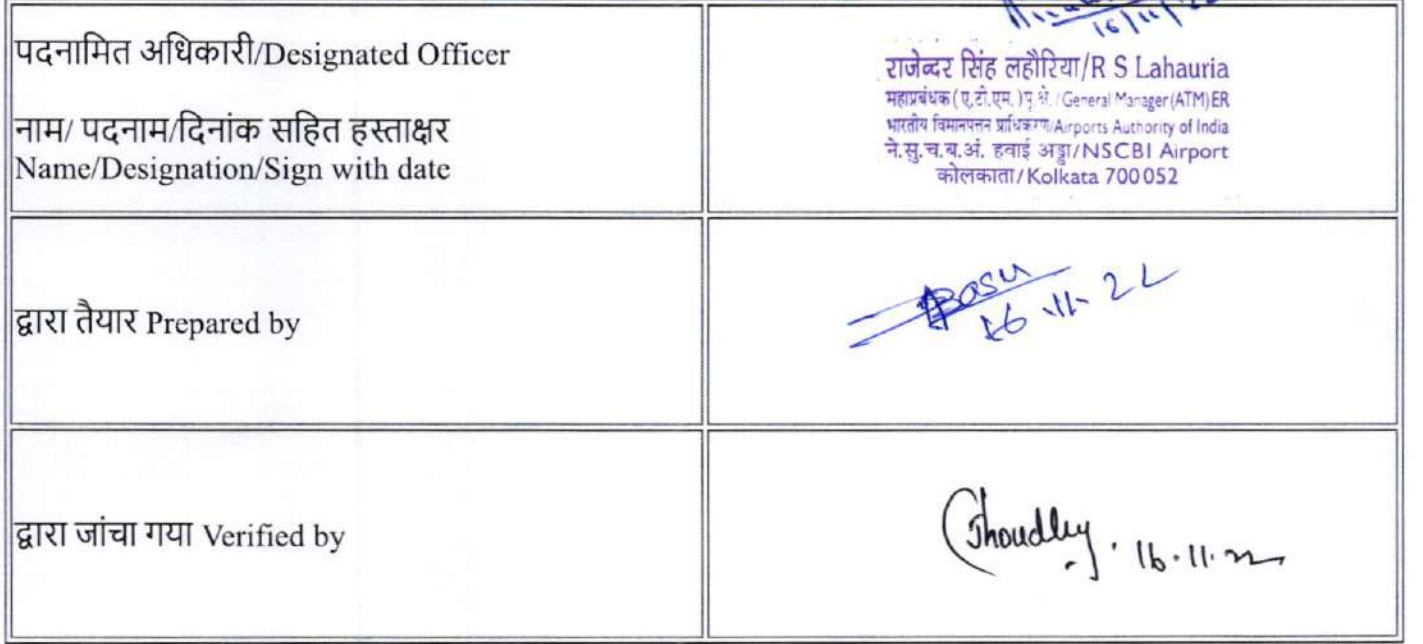 16/11/22
पदनामित अधिकारी/Designated Officer
नाम/ पदनाम/दिनांक सहित हस्ताक्षर
Name/Designation/Sign with date
राजेन्दर सिंह लहौरिया/R S Lahauria
महाप्रबंधक (ए.टी.एम.) पू.क्षे./General Manager (ATM) ER
भारतीय विमानपत्तन प्राधिकरण/Airports Authority of India
ने.सु.च.ब.अं. हवाई अड्डा/NSCBI Airport
कोलकाता/Kolkata 700 052
द्वारा तैयार Prepared by
Basu
16.11.22
द्वारा जांचा गया Verified by
16.11.22